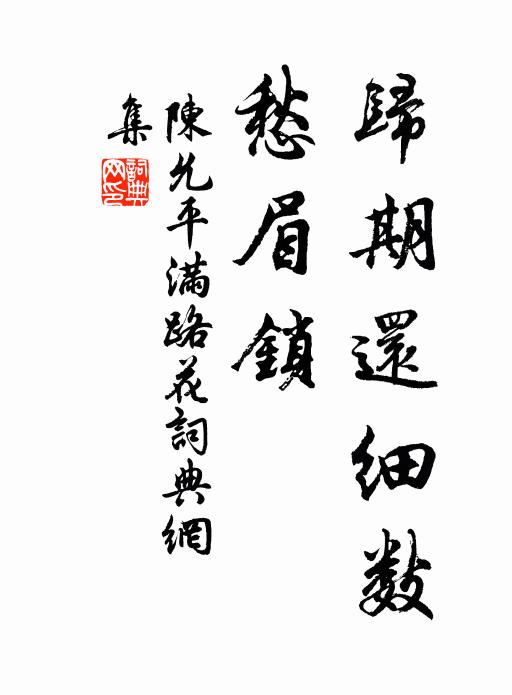 歸期還細數
愁眉鎖
陳允平滿路花詞典網
集
詞典
网印